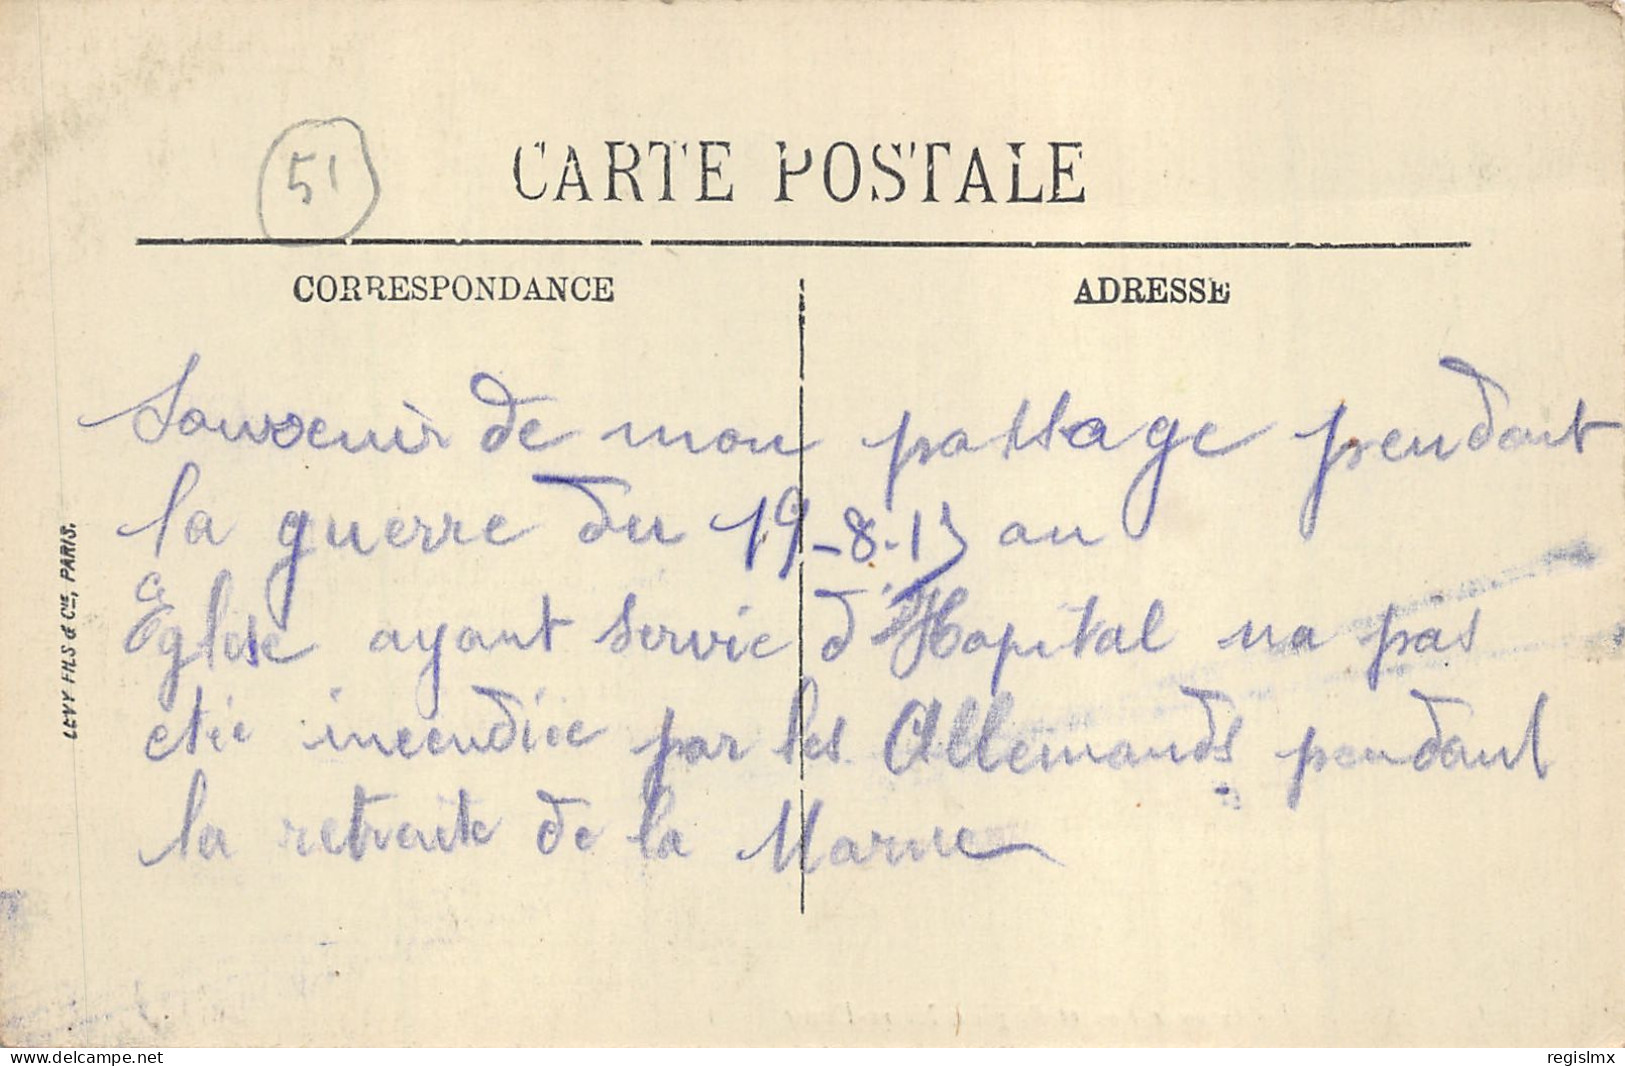 51
CARTE POSTALE
CORRESPONDANCE
ADRESSE
Souvenir de mon passage pendant
la guerre du 19-8-15 au
Eglise ayant servie d'Hopital na pas
etie incendiie par les Allemands pendant
la retraite de la Marne
LEVY FILS & Cie, PARIS.
delcampe.net
regislmx